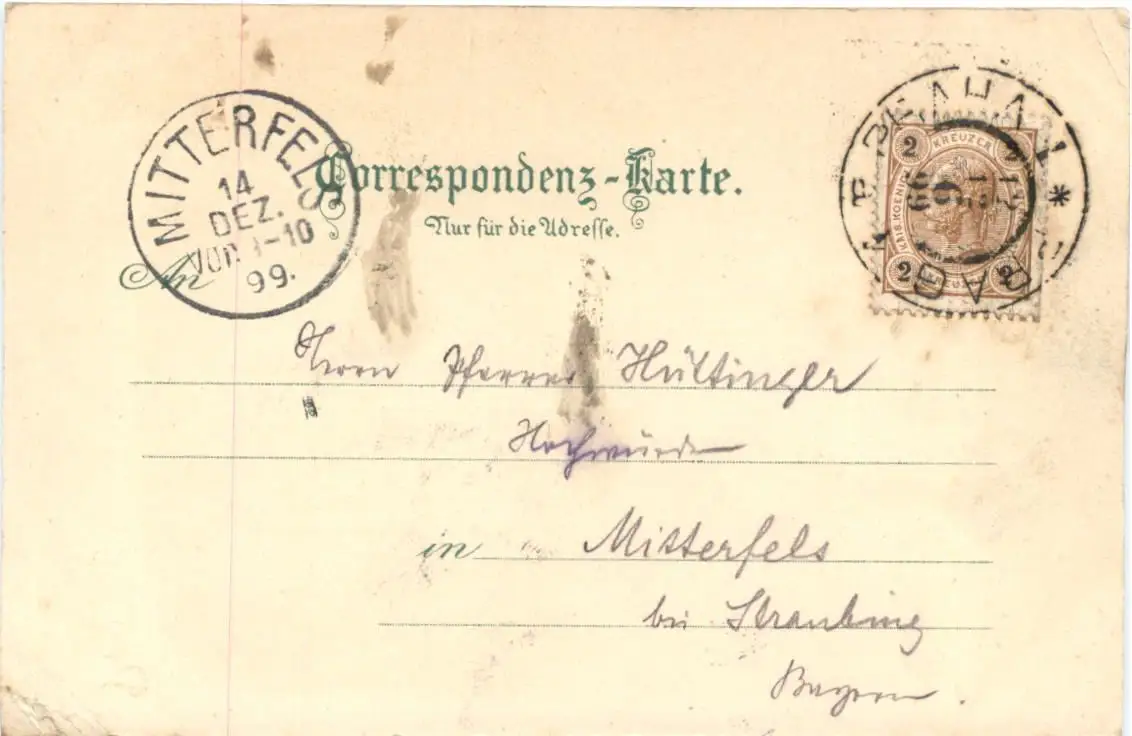 MITTERFELS
14
DEZ.
VOR 10
99.
PRAHA 1
PRAG
2 KREUZER 2
KAIS. KOENIGL
2 KREUZER 2
Correspondenz-Karte.
Nur für die Adresse.
An
Herrn Pfarrer Hüttinger
Hochwürden
in Mitterfels
bei Straubing
Bayern.